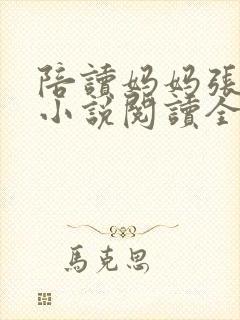 陪讀媽媽張
小說閱讀全
馬克思